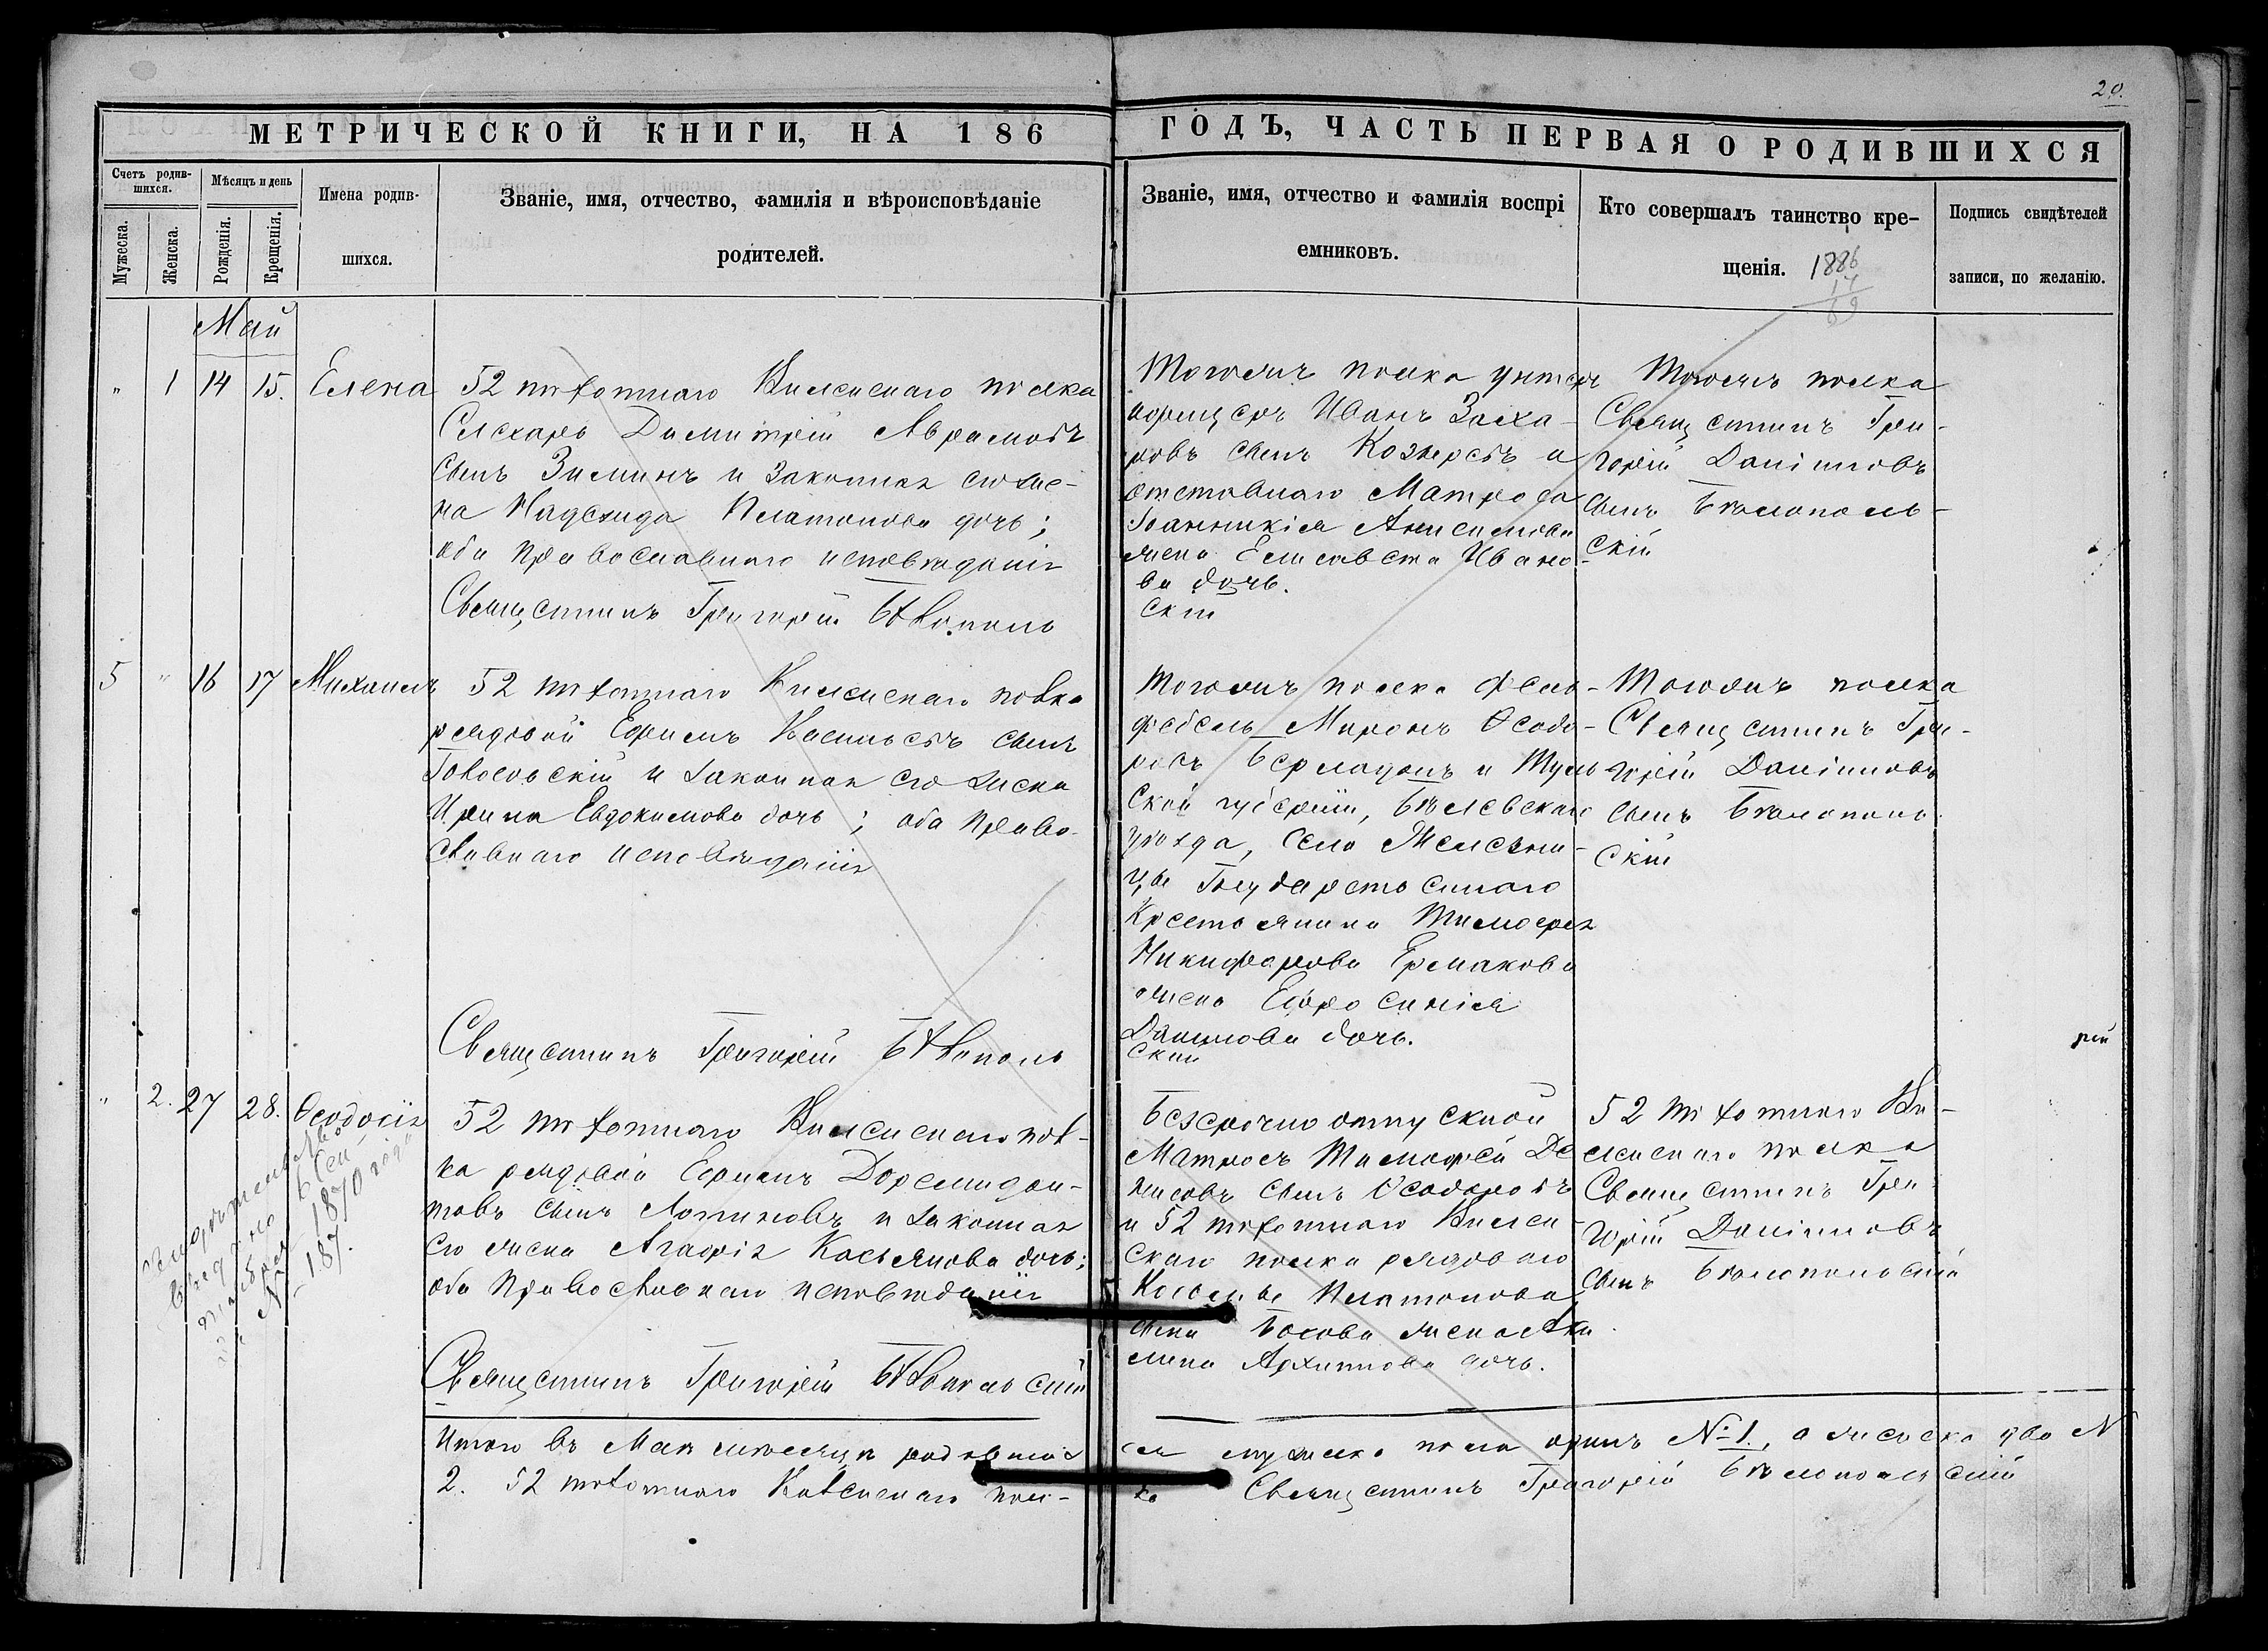 20.
МЕТРИЧЕСКОЙ КНИГИ, НА 186
ГОДЪ, ЧАСТЬ ПЕРВАЯ О РОДИВШИХСЯ
Счетъ родив-
шихся.
Мужеска.
Женска.
Мѣсяцъ и день
Рожденія.
Крещенія.
Имена родив-
шихся.
Званіе, имя, отчество, фамилія и вѣроисповѣданіе
родителей.
Званіе, имя, отчество и фамилія воспрі
емниковъ.
Кто совершалъ таинство кре-
щенія.
1886
17
69
Подпись свидѣтелей
записи, по желанію.
Май
" 1 14 15. Елена
52 пѣхотнаго Виленскаго полка
Слесарь Димитрій Аврамовъ
сынъ Зиминъ и законная его же-
на Надежда Платонова дочь;
оба православнаго исповѣданія
Священникъ Григорій Бѣлополь
скій
Тогожъ полка унтеръ
офицеръ Иванъ Заха-
ровъ сынъ Козыревъ и
отставнаго Матроса
Іоанникія Анисимова
жена Елисавета Ивано-
ва дочь.
Тогожъ полка
Священникъ Гри-
горій Даніиловъ
сынъ Бѣлополь-
скій
5 " 16 17 Михаилъ
52 пѣхотнаго Виленскаго полка
рядовой Ефимъ Васильевъ сынъ
и законная его жена
Ирина Евдокимова дочь; оба Право-
славнаго исповѣданія
Священникъ Григорій Бѣлополь
скій
Тогожъ полка Фельд-
фебель Миронъ Ѳеодо-
ровъ и Туль
ской губерніи, Бѣлевскаго
уѣзда, села
цы Государственнаго
Крестьянина Тимофея
Никифорова Ермакова
жена Ефросинія
Данилова дочь.
Тогожъ полка
Священникъ Гри-
горій Даніиловъ
сынъ Бѣлополь-
скій
рій
" 2. 27 28. Ѳеодосія
52 пѣхотнаго Виленскаго пол-
ка рядовой Ефимъ Дормидон-
товъ сынъ Логиновъ и законная
его жена Агафія Касьянова дочь;
оба Православнаго исповѣданія
Священникъ Григорій Бѣлопольскій
Безсрочно отпускной
Матросъ Тимофей Де
нисовъ сынъ Ѳеодоровъ
и 52 пѣхотнаго Вилен-
скаго полка рядоваго
Платонова
сына жена Аки
лина Архипова дочь.
52 пѣхотнаго Ви-
ленскаго полка
Священникъ Гри
горій Даніиловъ
сынъ Бѣлопольскій
1870 года
№ 187.
Итого въ Маѣ мѣсяцѣ родивших
ся мужеска пола одинъ № 1, а женска два №
2. 52 пѣхотнаго Виленскаго пол-
ка Священникъ Григорій Бѣлопольскій